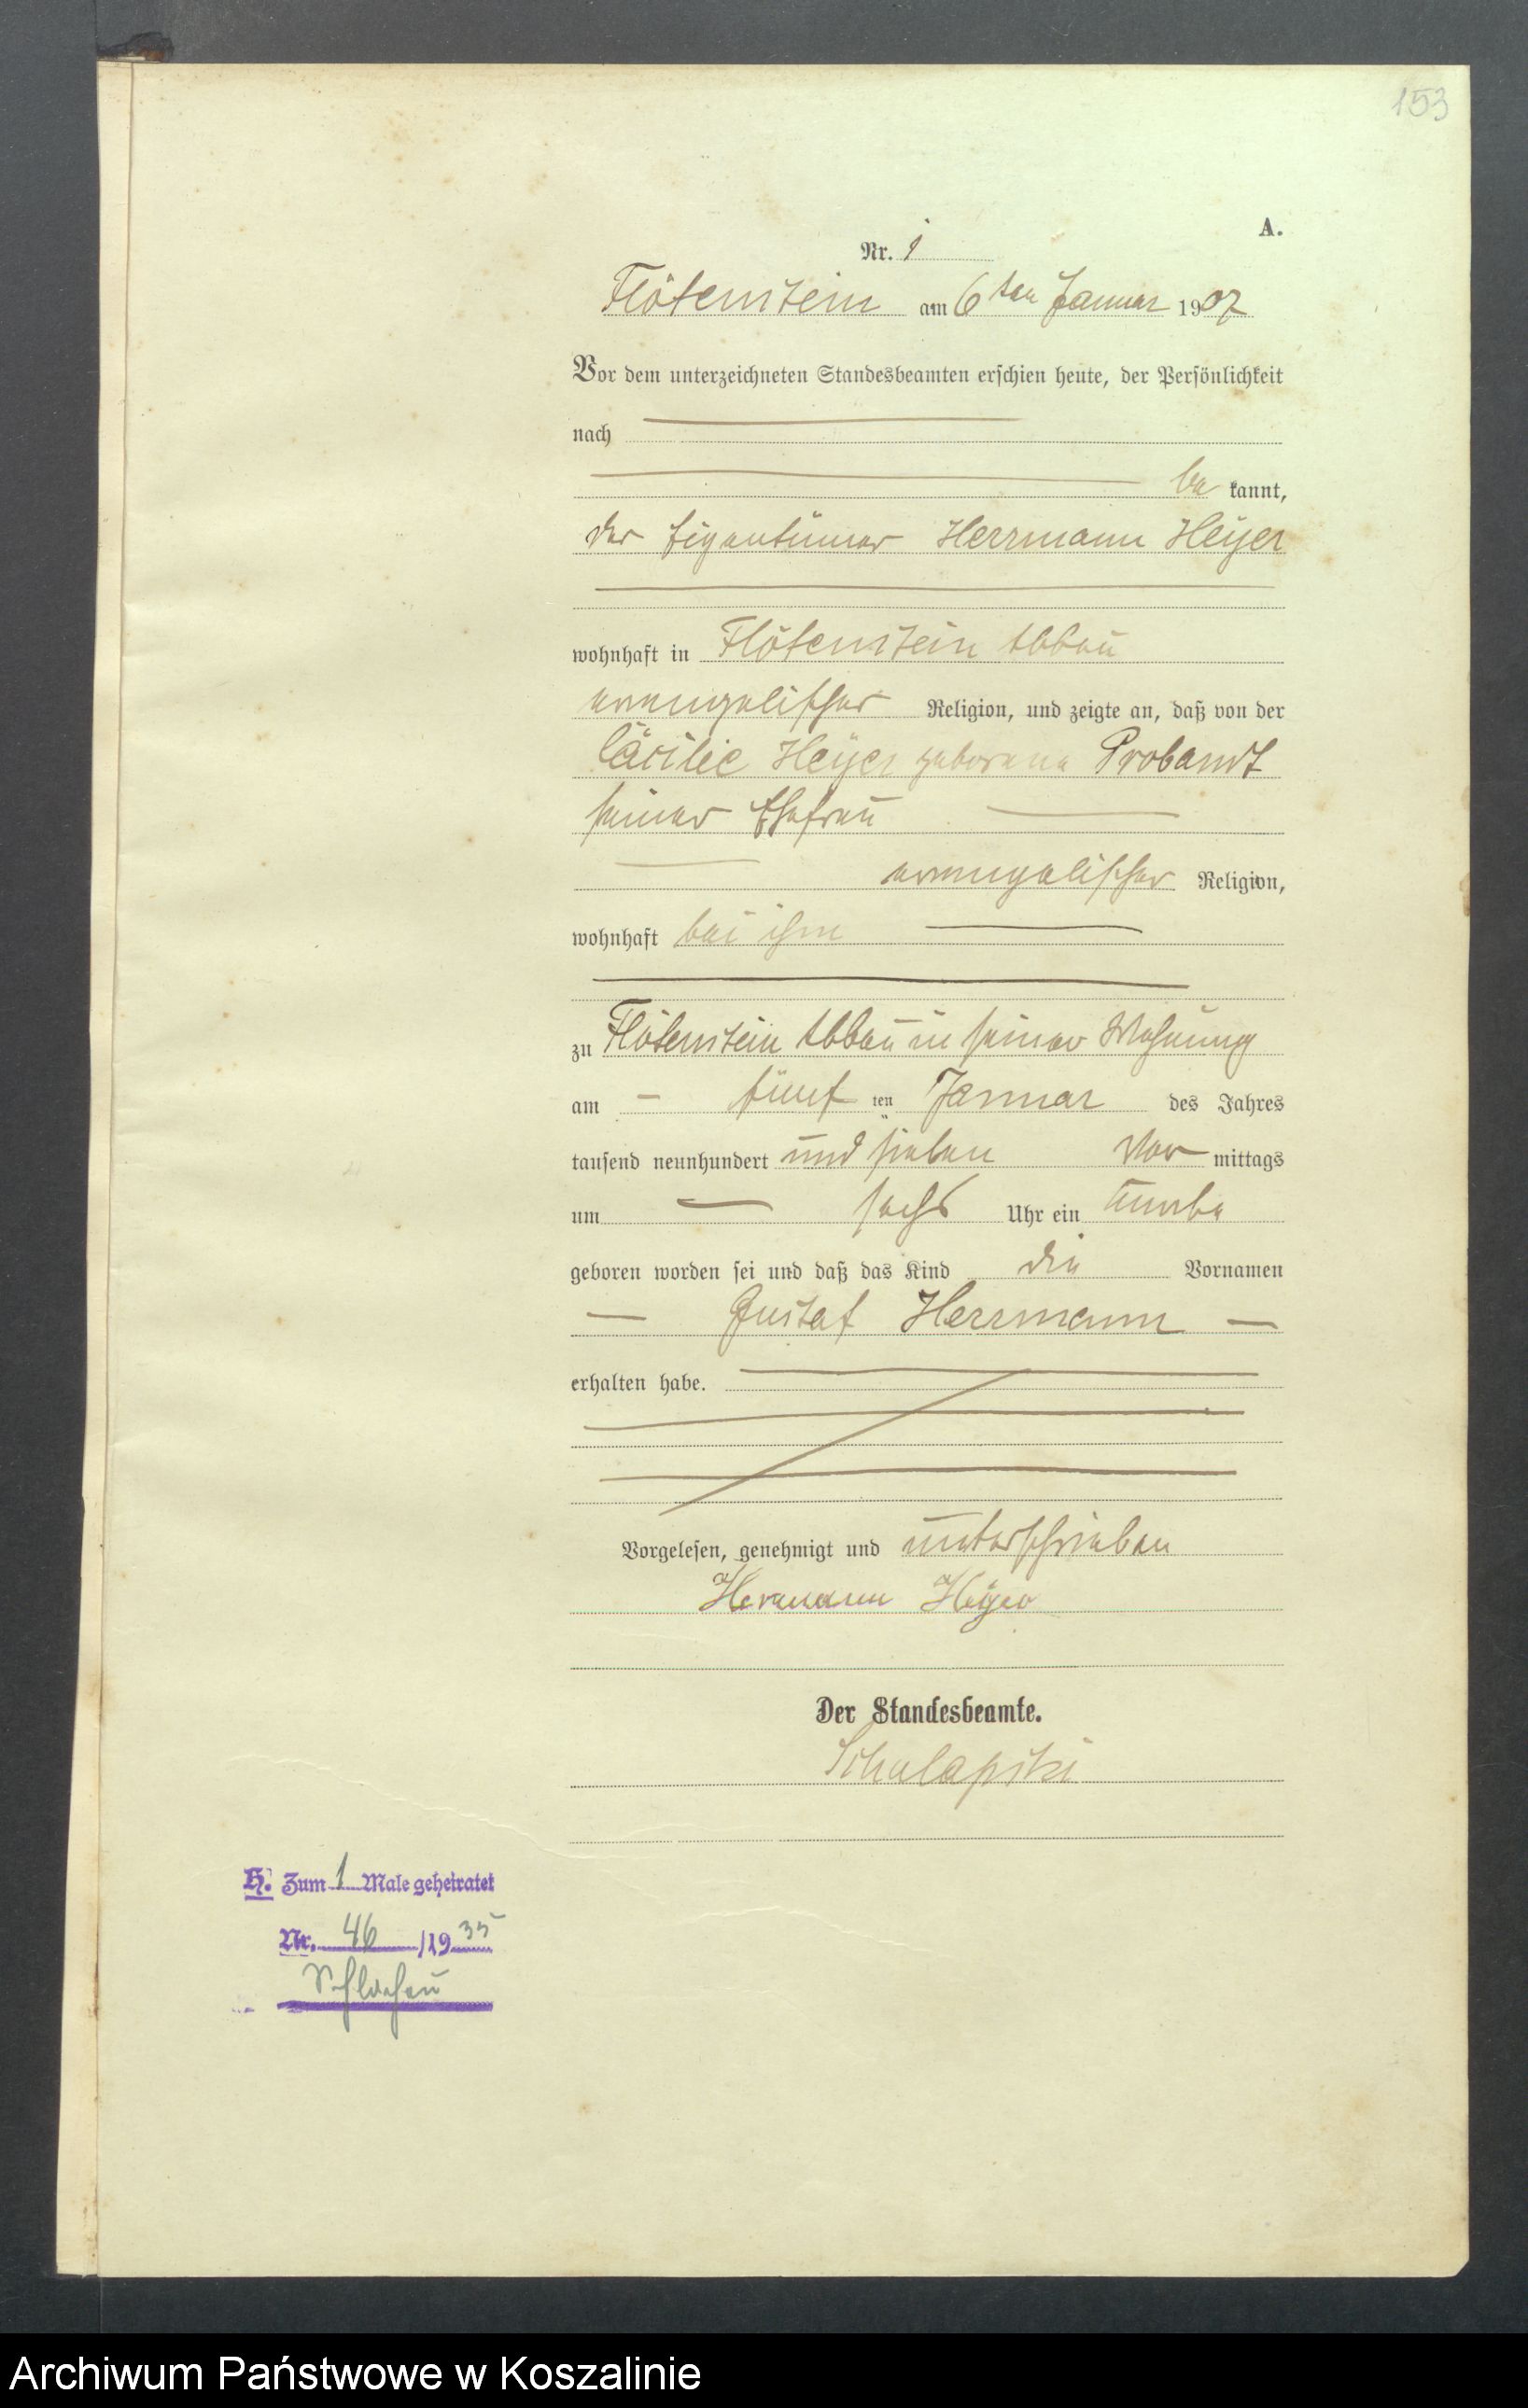 153
A.
Nr. 1
Flötenstein am 6ten Januar 1907
Vor dem unterzeichneten Standesbeamten erschien heute, der Persönlichkeit
nach
be kannt,
der Eigentümer Herrmann Heyer
wohnhaft in Flötenstein Abbau
evangelischer Religion, und zeigte an, daß von der
Cäcilie Heyer geborene Probandt
seiner Ehefrau
evangelischer Religion,
wohnhaft bei ihm
zu Flötenstein Abbau in seiner Wohnung
am fünf ten Januar des Jahres
tausend neunhundert und sieben Vor mittags
um sechs Uhr ein Knabe
geboren worden sei und daß das Kind die Vornamen
Gustaf Herrmann
erhalten habe.
Vorgelesen, genehmigt und unterschrieben
Hermann Heyer
Der Standesbeamte.
H. Zum 1 Male geheiratet
Nr. 46 /1935
Schlochau
Archiwum Państwowe w Koszalinie